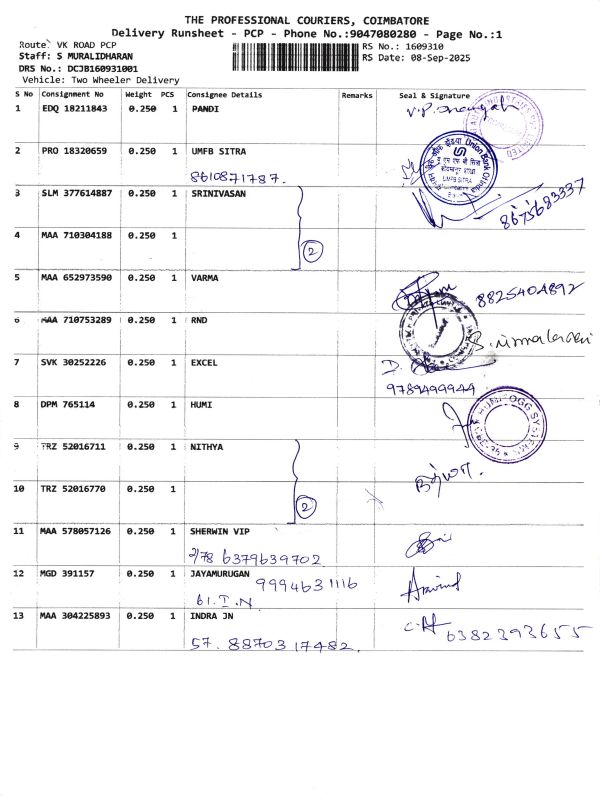 THE PROFESSIONAL COURIERS, COIMBATORE
Delivery Runsheet - PCP - Phone No.:9047080280 - Page No.:1
Route: VK ROAD PCP
RS No.: 1609310
Staff: S MURALIDHARAN
RS Date: 08-Sep-2025
DRS No.: DCJB160931001
Vehicle: Two Wheeler Delivery
S No Consignment No Weight PCS Consignee Details Remarks Seal & Signature
1 EDQ 18211843 0.250 1 PANDI
2 PRO 18320659 0.250 1 UMFB SITRA
8610871787.
Union Bank Of India
UMFB SITRA
3 SLM 377614887 0.250 1 SRINIVASAN
8675683337
4 MAA 710304188 0.250 1
2
5 MAA 652973590 0.250 1 VARMA
8825404892
6 MAA 710753289 0.250 1 RND
7 SVK 30252226 0.250 1 EXCEL
9789499949
8 DPM 765114 0.250 1 HUMI
9 TRZ 52016711 0.250 1 NITHYA
10 TRZ 52016770 0.250 1
2
11 MAA 578057126 0.250 1 SHERWIN VIP
2/78 6379639702
12 MGD 391157 0.250 1 JAYAMURUGAN
9994631116
61. I. N
Aravind
13 MAA 304225893 0.250 1 INDRA JN
57. 8870317482.
6382393655